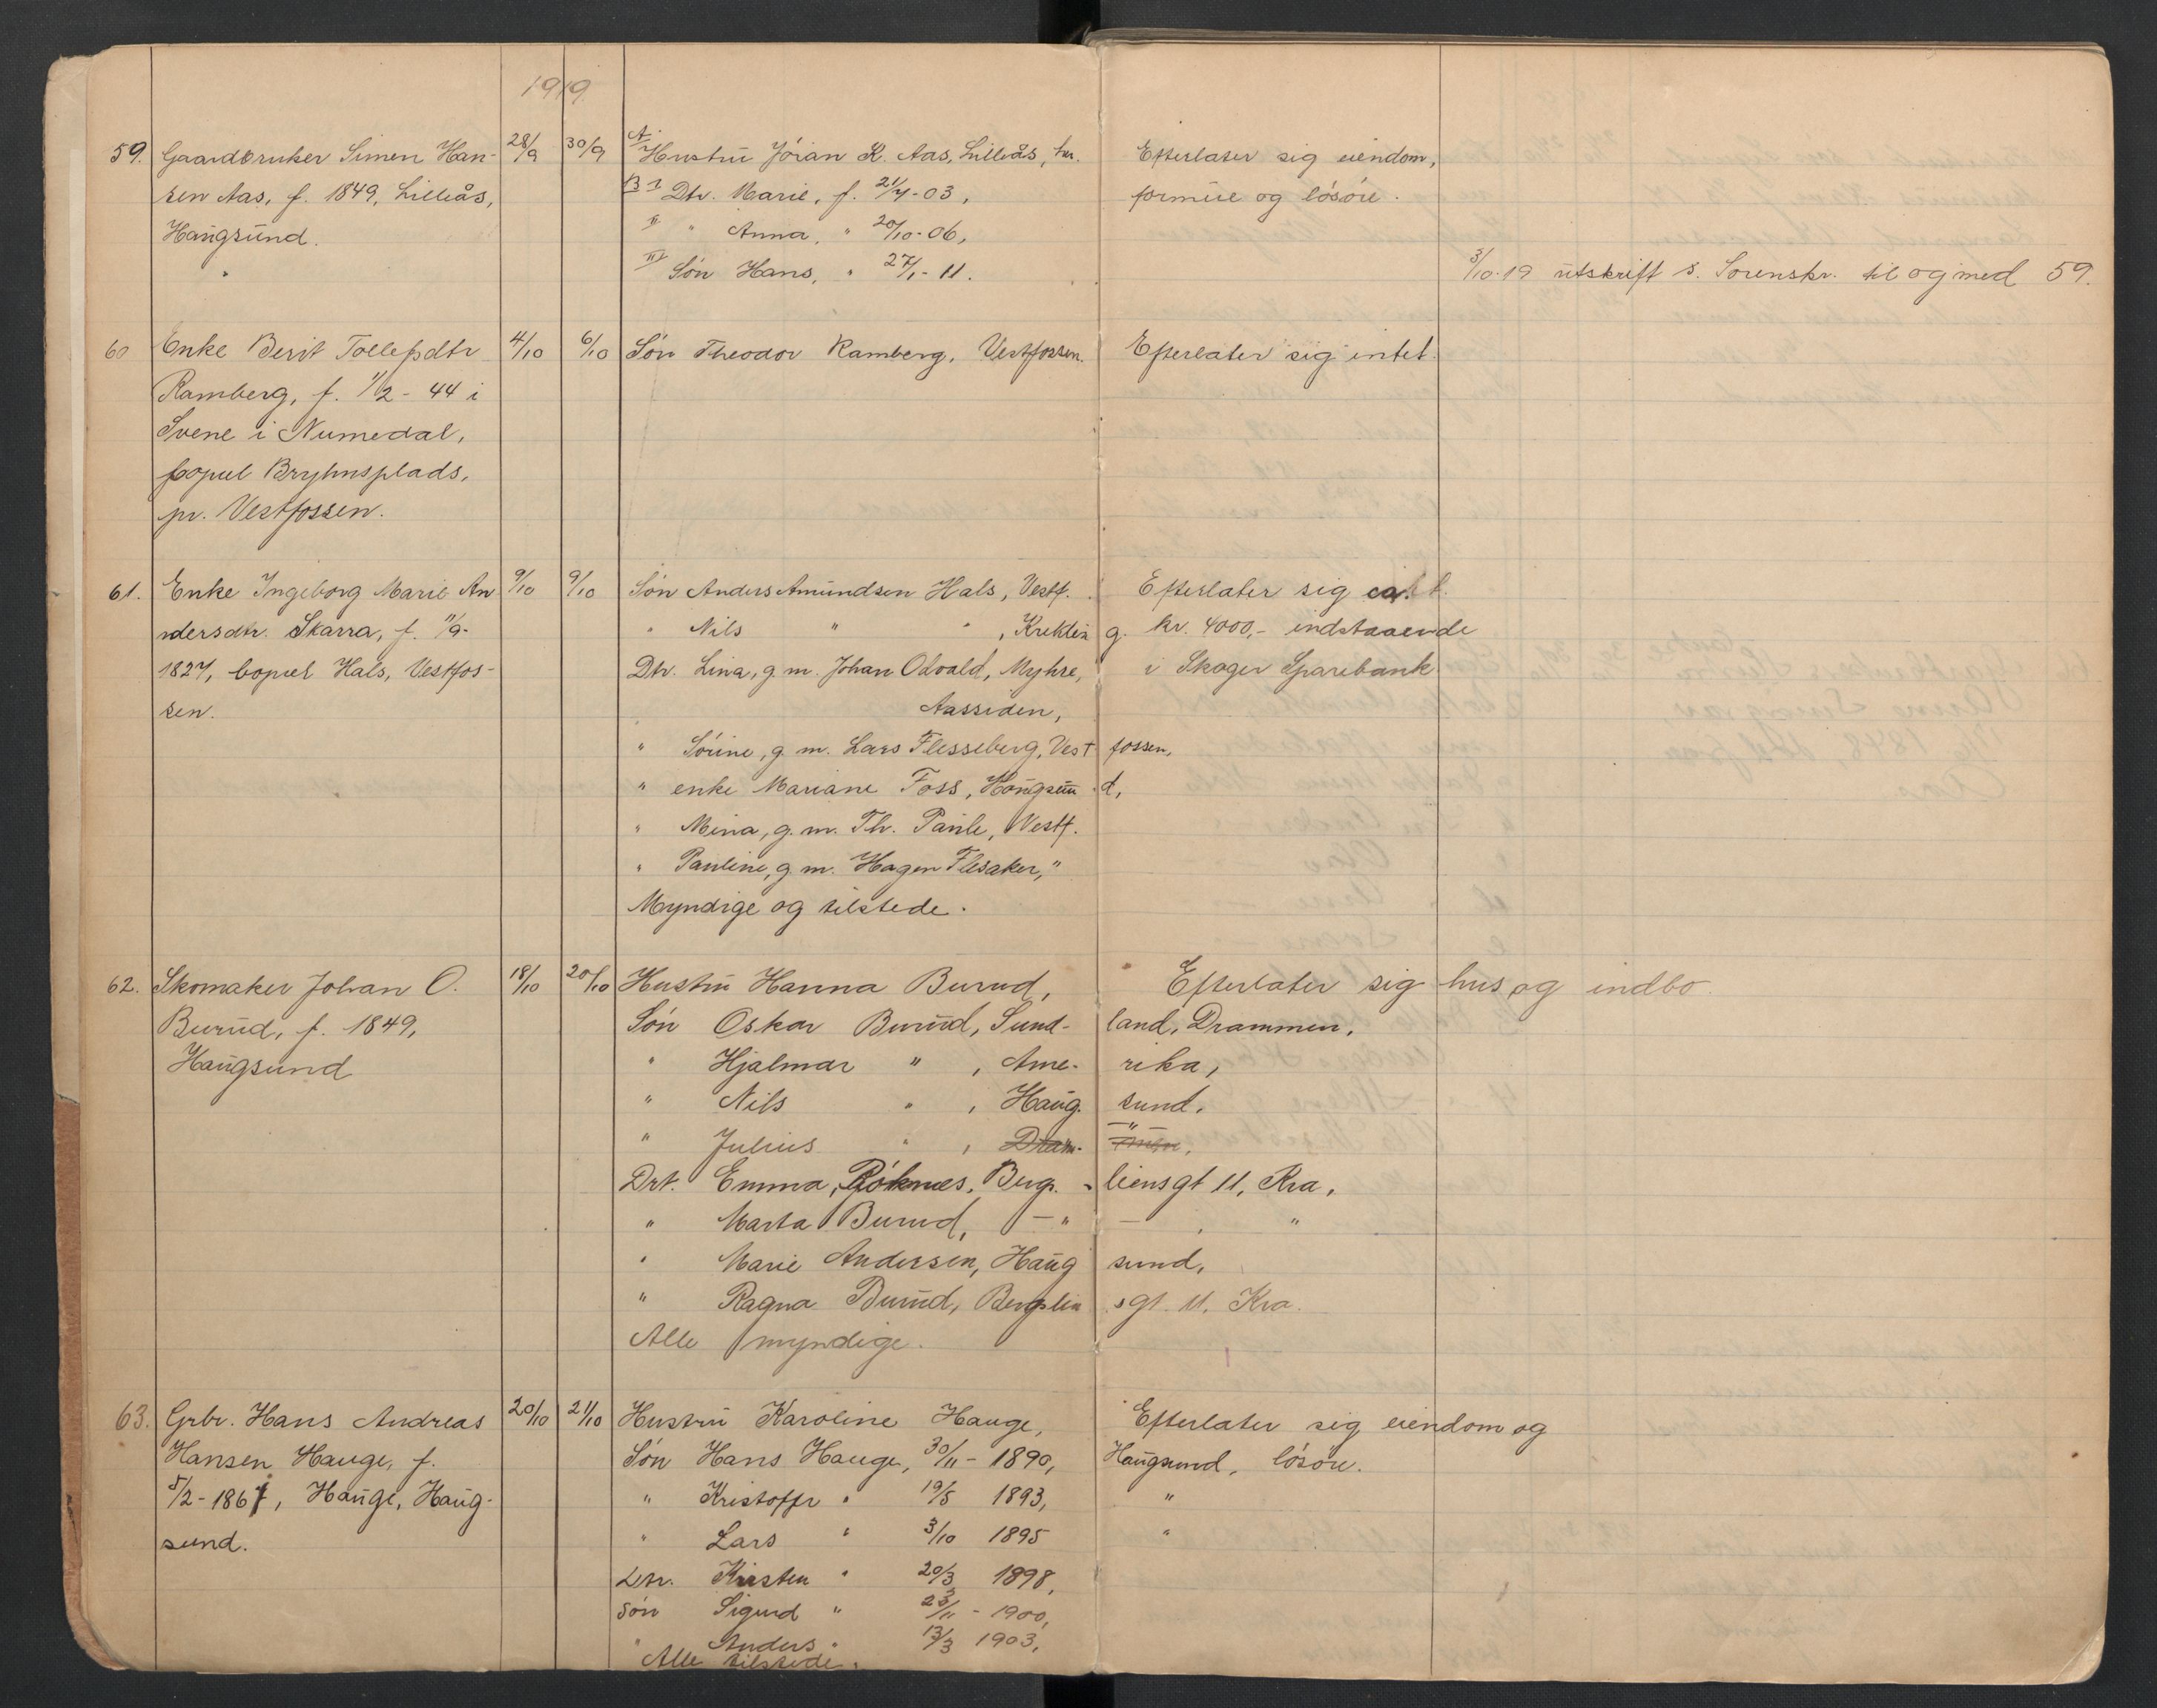 1919
59. Gaardbruker Simen Han- 28/9 30/9 A. Hustru Jöran K. Aas, Lilleås, her. Efterlater sig eiendom,
sen Aas, f. 1849, Lilleås, B I Dtr. Marie, f. 21/4-03, formue og lösöre.
Haugsund. II " Anna, " 20/10-06,
III Sön Hans, " 27/1-11. 3/10-19 utskrift s. Sorenskr. til og med 59.
60 Enke Berit Tollefsdtr 4/10 6/10 Sön Theodor Ramberg, Vestfossen. Efterlater sig intet.
Ramberg, f. 1/2-44 i
Svene i Numedal,
bopæl Bryhnsplads,
pr. Vestfossen.
61. Enke Ingeborg Marie An 9/10 9/10 Sön Anders Amundsen Hals, Vestf. Efterlater sig ca.
ndersdtr. Skarra, f. 11/9- " Nils " " , Kreklin g. kr. 4000,- indstaaende
1827, bopæl Hals, Vestfos- Dtr. Lina, g. m. Johan Odvald, Myhre, i Skoger Sparebank.
sen. Aassiden,
" Sörine, g. m. Lars Flesseberg, Vest fossen,
" enke Mariane Foss, Hougsun d,
" Mina, g. m. Th. Paule, Vestf.
" Pauline, g. m. Hagen Flesaker, "
Myndige og tilstede.
62. Skomaker Johan O. 18/10 20/10 Hustru Hanna Burud, Efterlater sig hus og indbo.
Burud, f. 1849, Sön Oskar Burud, Sund- land, Drammen,
Haugsund " Hjalmar " , Ame- rika,
" Nils " , Haug. sund,
" Julius " , Dram- men, - " -
Drt. Emma, Röknes, Berg. - liensgt 11, Kra,
" Marta Burud, - " - , "
" Marie Andersen, Haug sund,
" Ragna Burud, Bergslin sgt. 11, Kra.
Alle myndige.
63. Grbr. Hans Andreas 20/10 21/10 Hustru Karoline Hauge, Efterlater sig eiendom og
Hansen Hauge, f. Sön Hans Hauge, 30/11-1890, Haugsund, lösöre.
5/2-1867, Hauge, Haug- " Kristoffr " 19/5 1893, "
sund. " Lars " 3/10 1895 "
Dtr. Kirsten " 20/3 1898,
Sön Sigurd " 23/11-1900,
" Anders " 13/3 1903,
Alle tilstede.